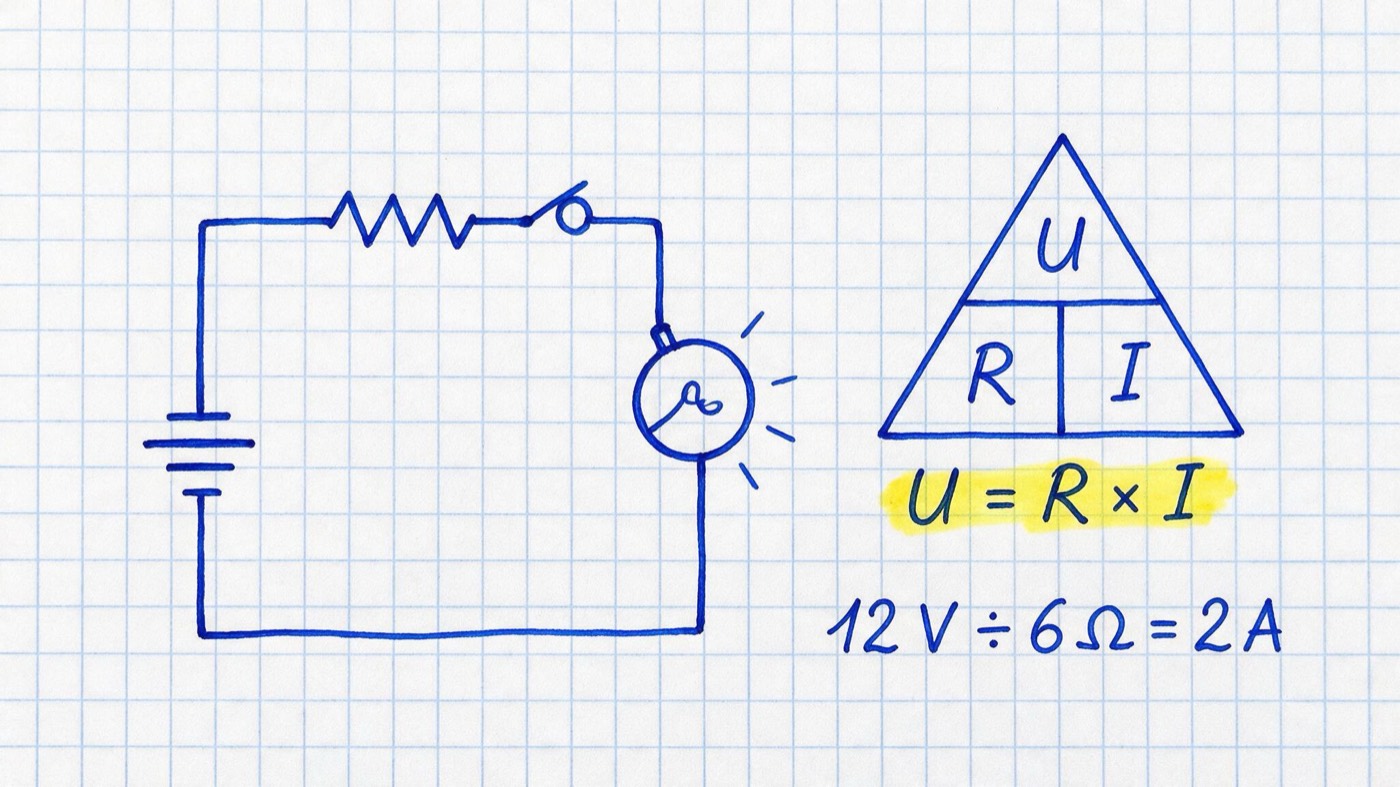 U
R I
U = R × I
12 V ÷ 6 Ω = 2 A